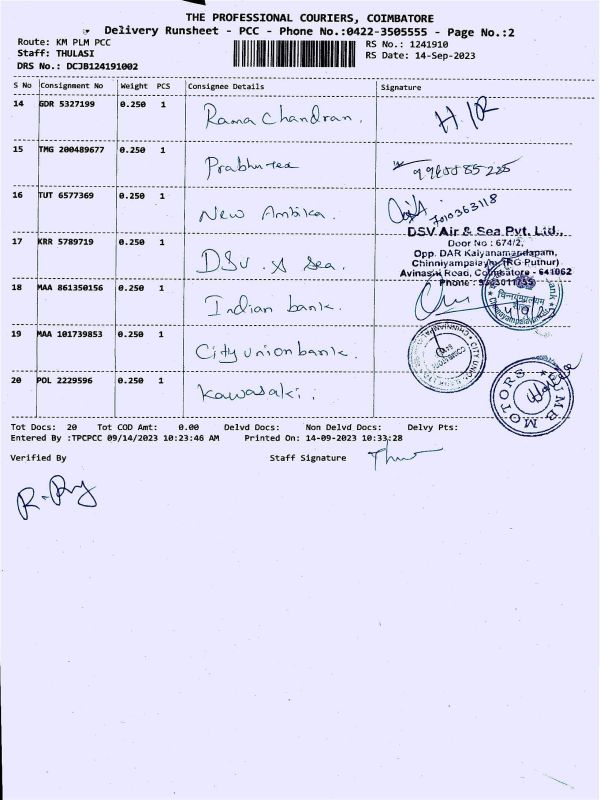 THE PROFESSIONAL COURIERS, COIMBATORE
Delivery Runsheet - PCC - Phone No.:0422-3505555 - Page No.:2
Route: KM PLM PCC
RS No.: 1241910
Staff: THULASI
RS Date: 14-Sep-2023
DRS No.: DCJB124191002
S No Consignment No Weight PCS Consignee Details Signature
14 GDR 5327199 0.250 1 Rama Chandran. H/R
15 TMG 200489677 0.250 1 Prabhu tex
16 TUT 6577369 0.250 1 New Ambika. 7010363118
DSV Air & Sea Pvt. Ltd.,
Door No : 674/2,
17 KRR 5789719 0.250 1 DSV. A Sea.
Opp. DAR Kalyanamandapam,
Chinniyampalayam (RG Puthur)
Avinashi Road, Coimbatore - 641062
18 MAA 861350156 0.250 1 Indian bank.
19 MAA 101739853 0.250 1 City union bank.
20 POL 2229596 0.250 1 Kawasaki.
MOTORS
Tot Docs: 20 Tot COD Amt: 0.00 Delvd Docs: Non Delvd Docs: Delvy Pts:
Entered By :TPCPCC 09/14/2023 10:23:46 AM Printed On: 14-09-2023 10:33:28
Verified By Staff Signature